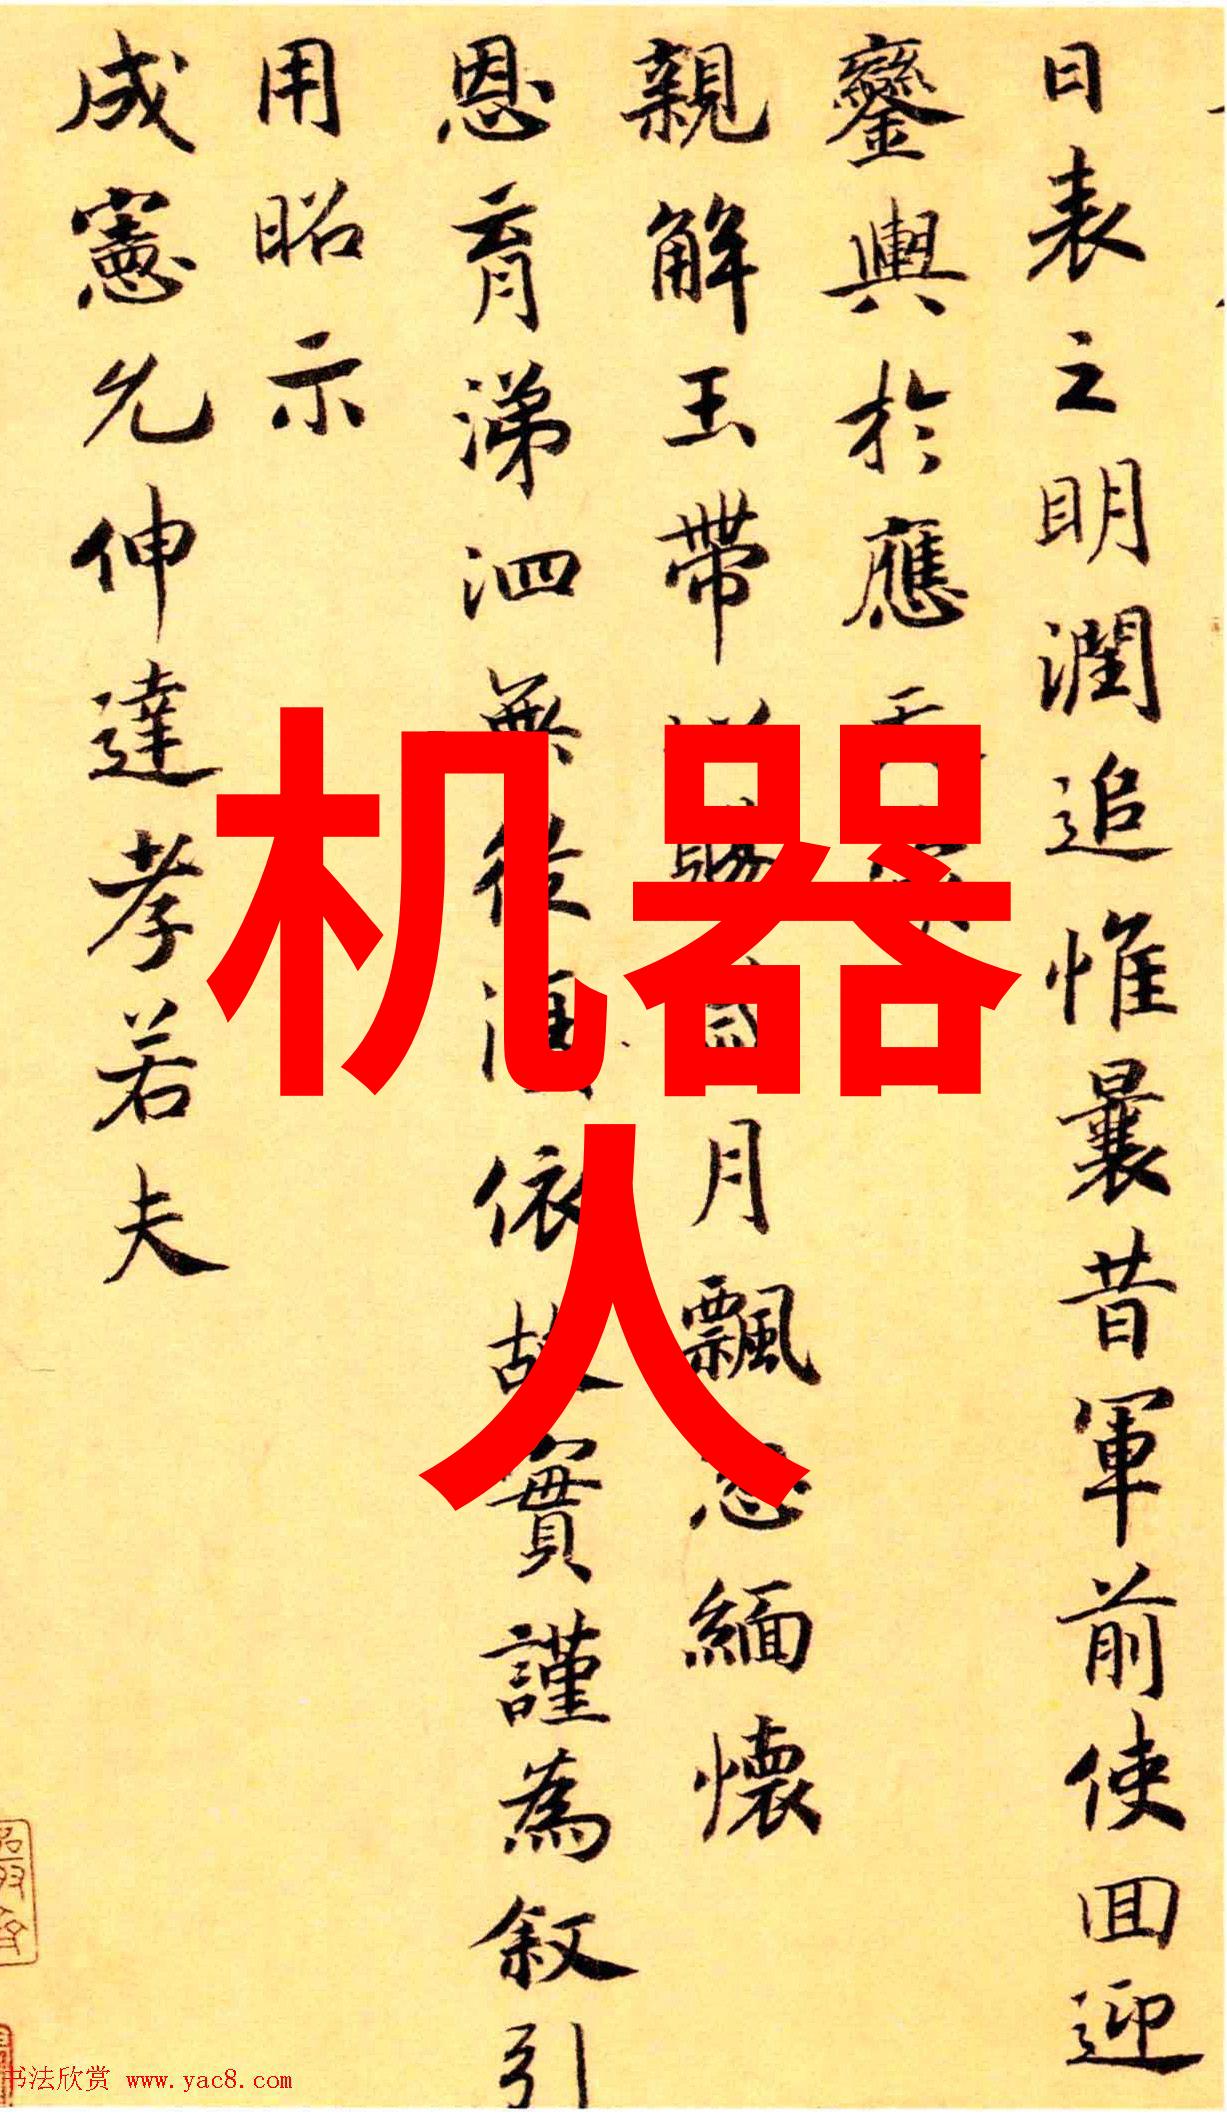 日表之明潤追惟曩昔軍前使回迎
鑾輿於應天
親解玉帶賜月飄忽緬懷
恩育涕泗無從涯依故實謹為叙引
用昭示
成憲允伸達孝若夫
机器
人
书法欣赏 www.yac8.com